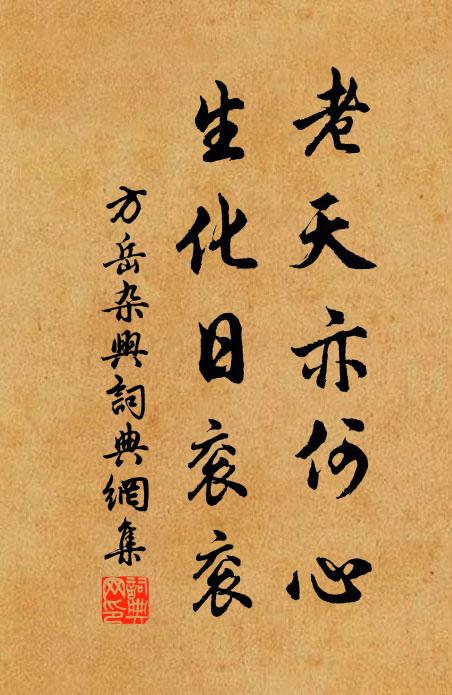 老天亦何心
生化日衮衮
方岳杂興詞典網集
詞典网印